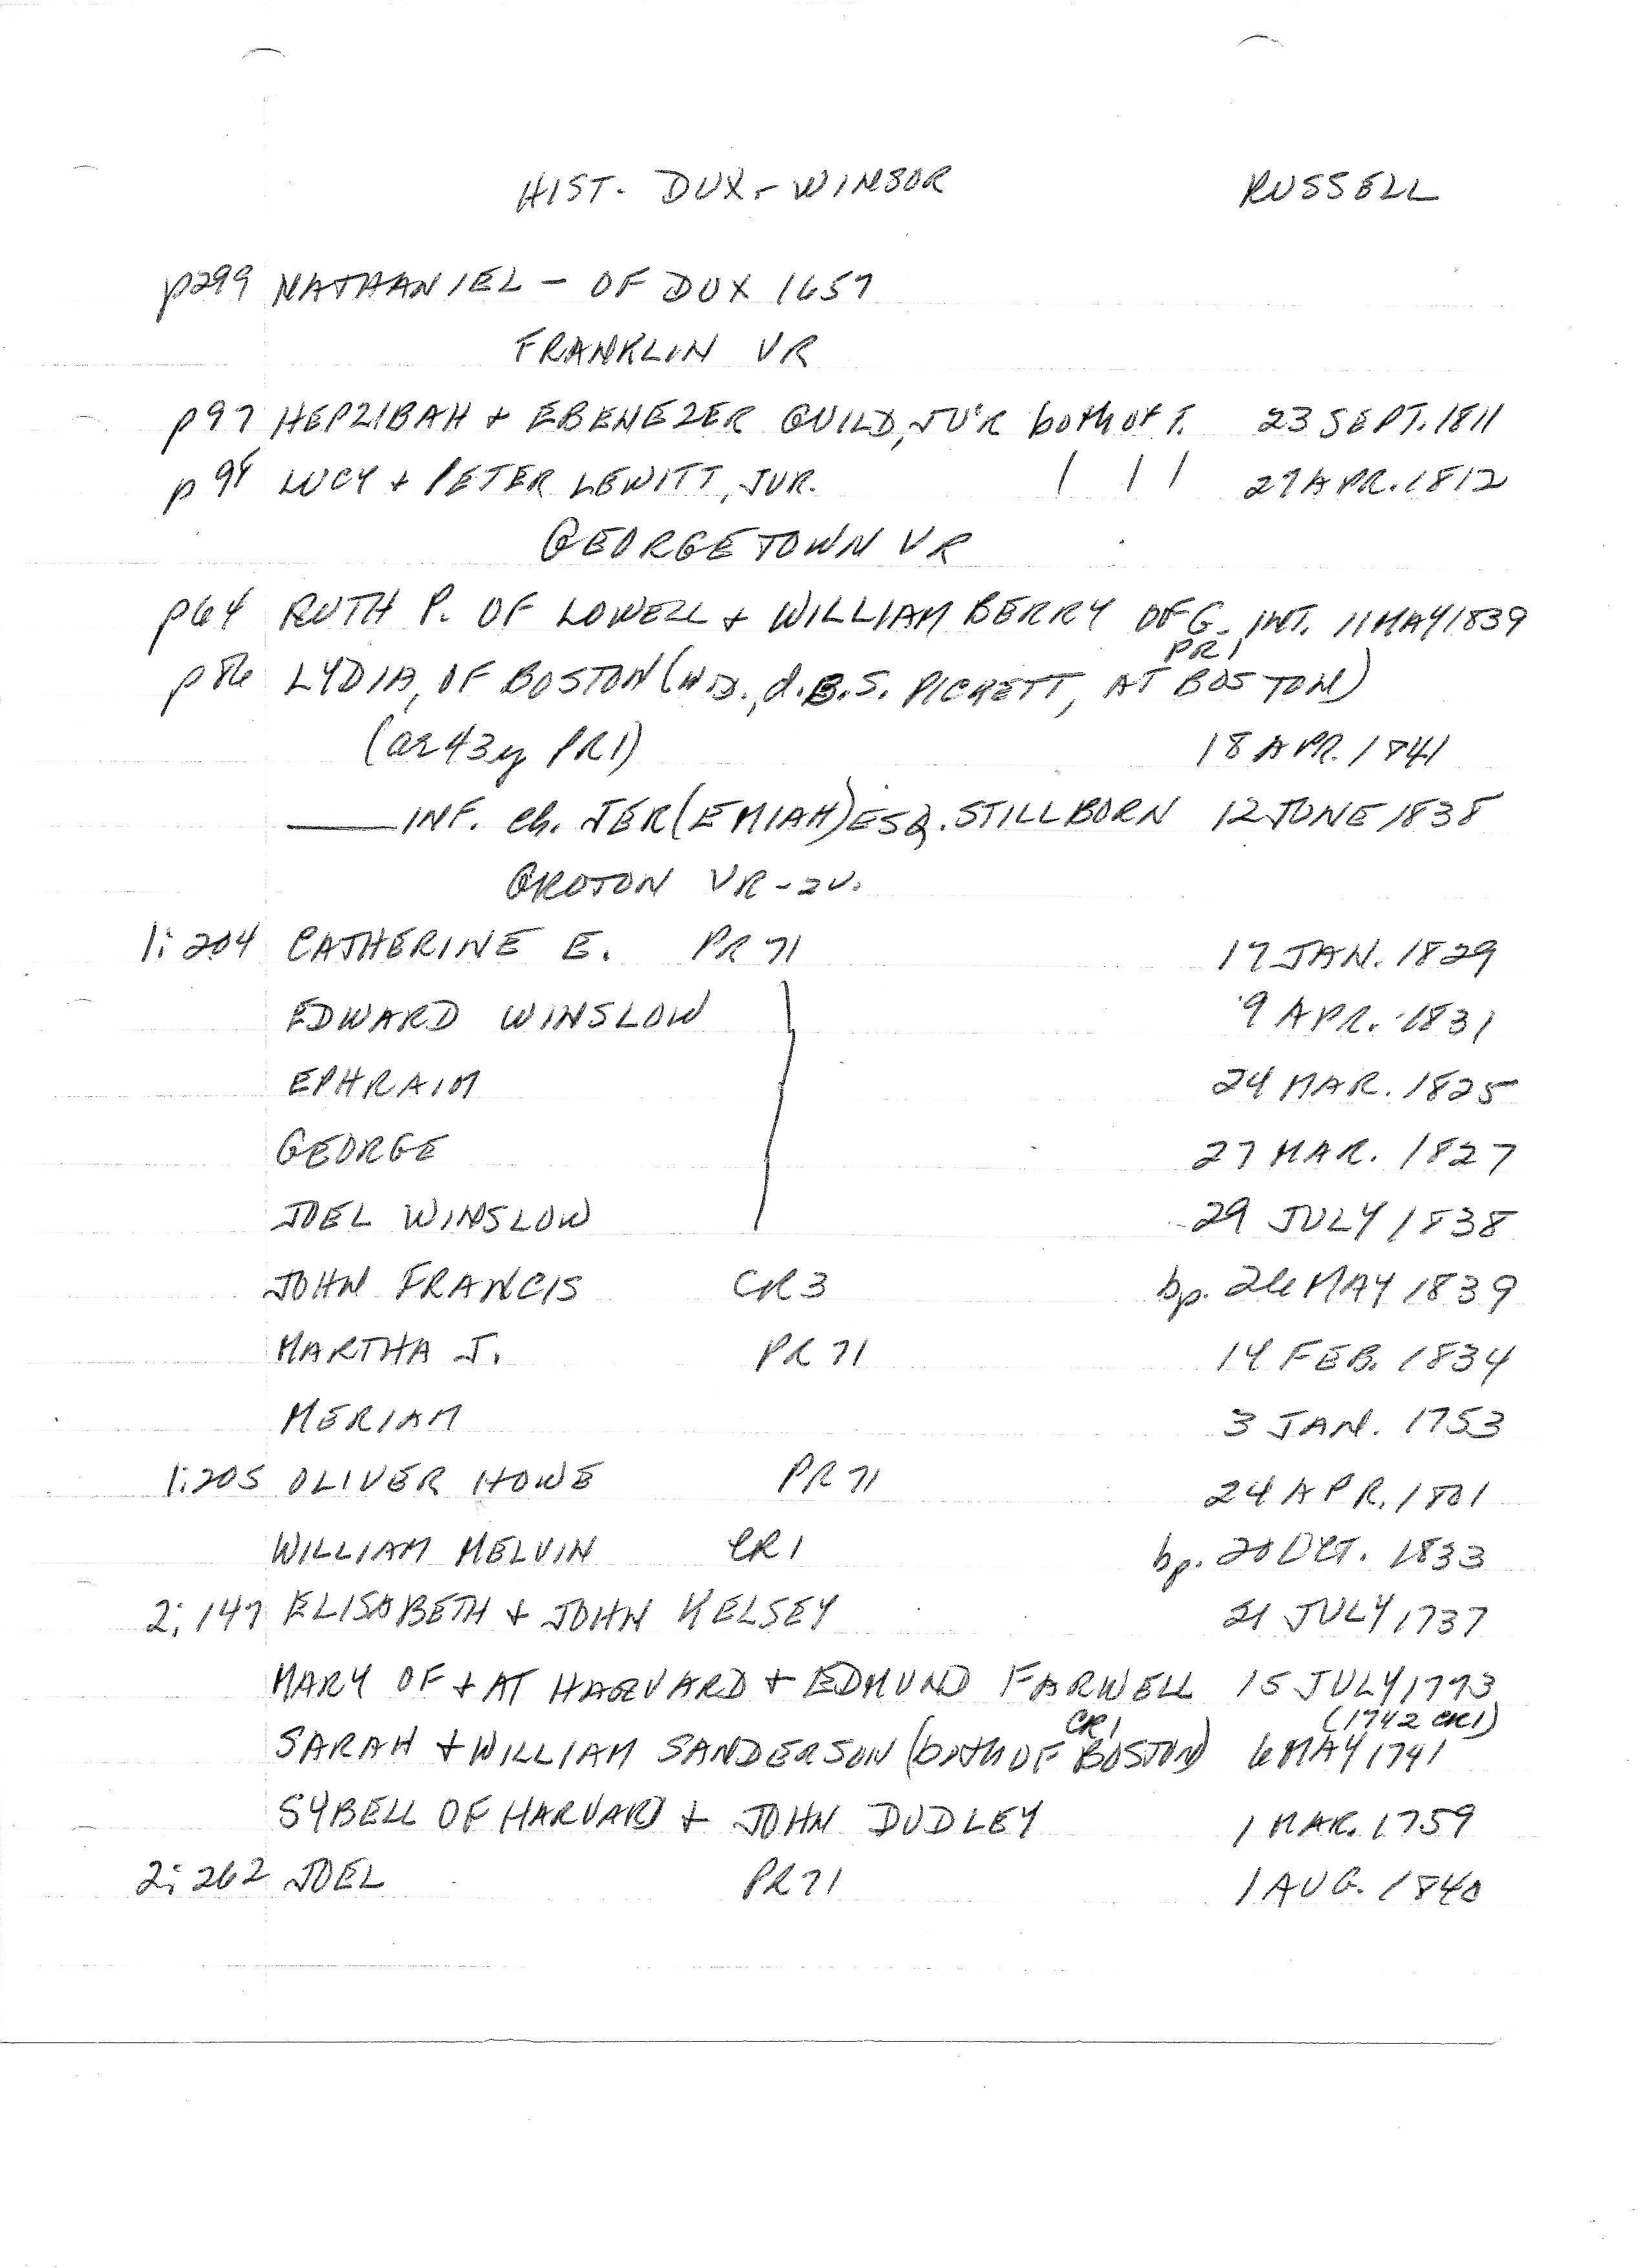 HIST. DUX - WINSOR RUSSELL
p299 NATHANIEL - OF DUX 1657
FRANKLIN VR
p97 HEPZIBAH + EBENEZER GUILD, JU'R both of F. 23 SEPT. 1811
p 98 LUCY + PETER LEWITT, JUR. | | | 27 APR. 1812
GEORGETOWN VR
p64 RUTH P. OF LOWELL + WILLIAM BERRY OF G. INT. 11 MAY 1839
PR1
p86 LYDIA, OF BOSTON (WID., d. B.S. PICKETT, AT BOSTON)
(ae 43y PR1) 18 APR. 1841
——— INF. ch. JER(EMIAH) ESQ. STILLBORN 12 JUNE 1838
GROTON VR - 2V.
1: 204 CATHERINE E. PR 71 17 JAN. 1829
EDWARD WINSLOW 9 APR. 1831
EPHRAIM 24 MAR. 1825
GEORGE 27 MAR. 1827
JOEL WINSLOW 29 JULY 1838
JOHN FRANCIS CR3 bp. 26 MAY 1839
MARTHA J. PR 71 14 FEB. 1834
MERIAM 3 JAN. 1753
1:205 OLIVER HOWE PR 71 24 APR. 1801
WILLIAM MELVIN CR1 bp. 20 OCT. 1833
2: 147 ELISABETH + JOHN KELSEY 21 JULY 1737
MARY OF + AT HARVARD + EDMUND FARWELL 15 JULY 1773
CR1 (1742 CR1)
SARAH + WILLIAM SANDERSON (both OF BOSTON) 6 MAY 1741
SYBELL OF HARVARD + JOHN DUDLEY 1 MAR. 1759
2: 262 JOEL PR71 1 AUG. 1840